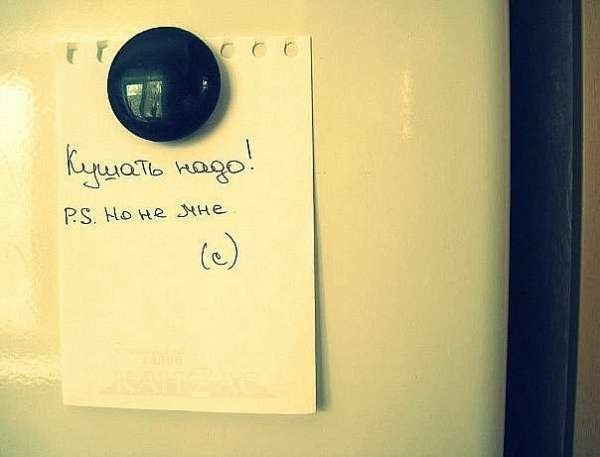 Кушать надо!
P.S. Но не мне
(с)